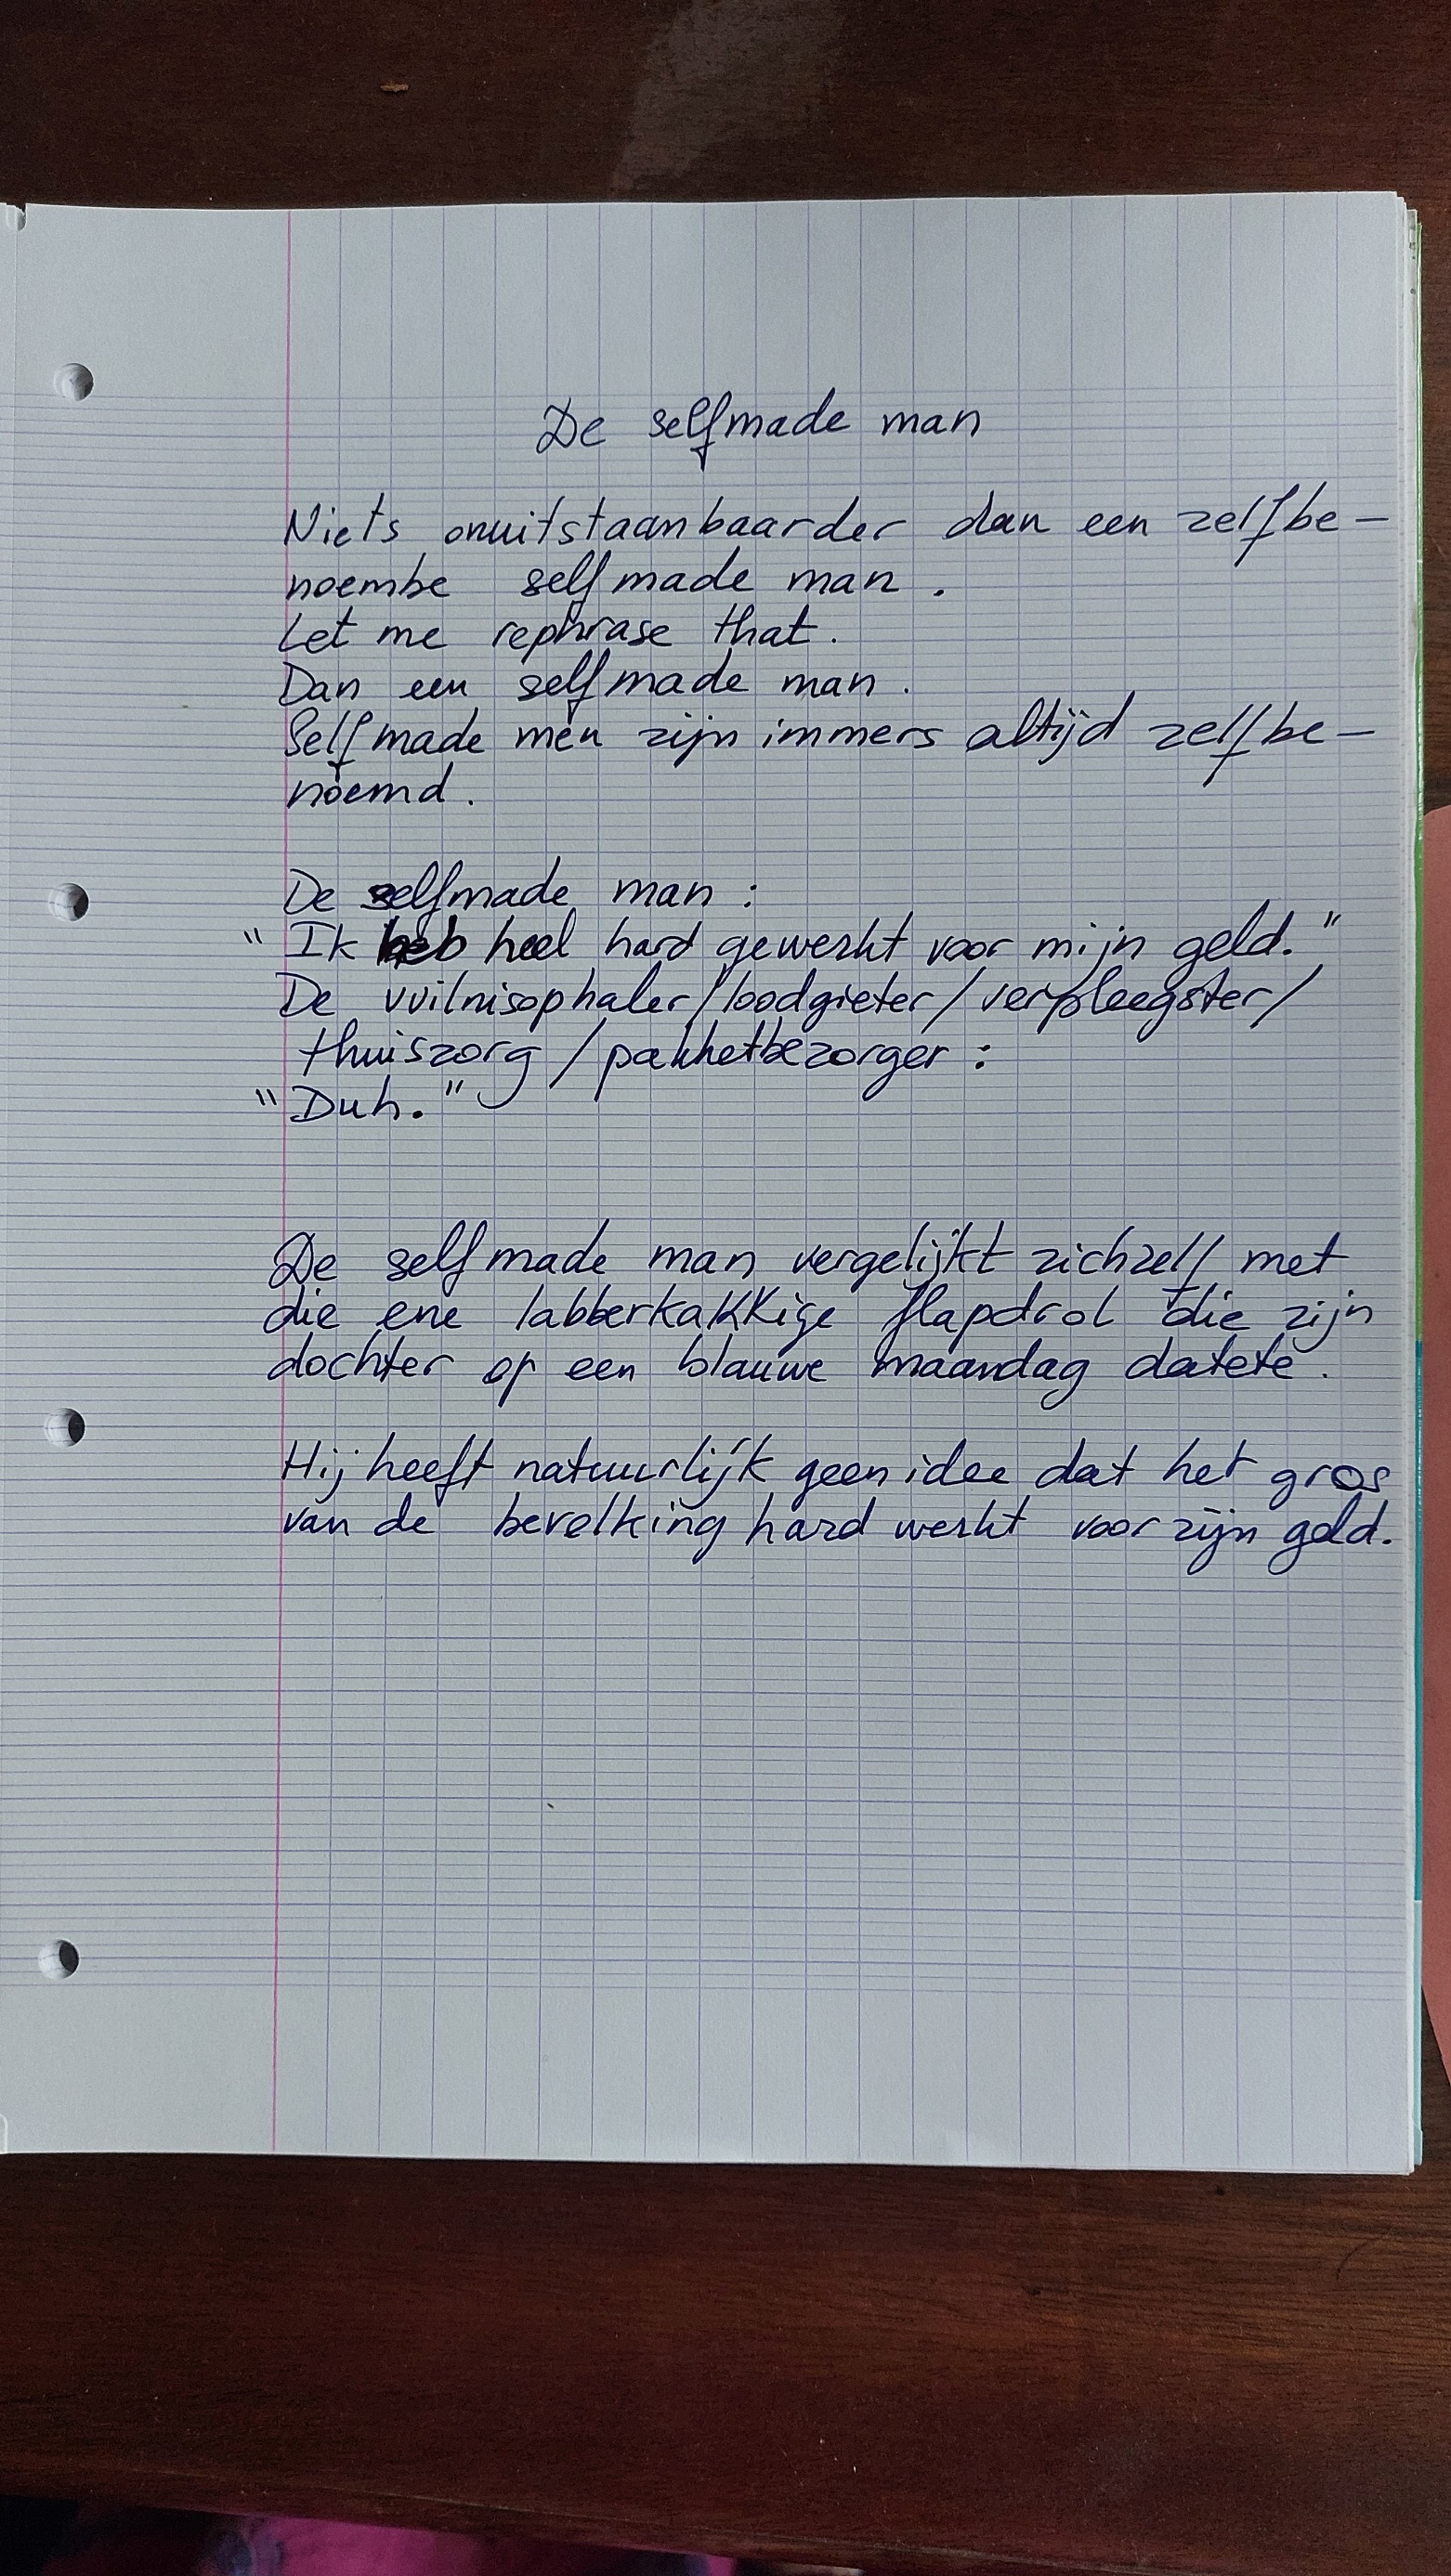 De selfmade man
Niets onuitstaanbaarder dan een zelfbe-
noembe selfmade man.
Let me rephrase that.
Dan een selfmade man.
Selfmade men zijn immers altijd zelfbe-
noemd.
De selfmade man:
"Ik heb heel hard gewerkt voor mijn geld."
De vuilnisophaler/loodgieter/verpleegster/
thuiszorg/pakketbezorger:
"Duh."
De selfmade man vergelijkt zichzelf met
die ene labberkakkige flapdrol die zijn
dochter op een blauwe maandag datete.
Hij heeft natuurlijk geen idee dat het gros
van de bevolking hard werkt voor zijn geld.